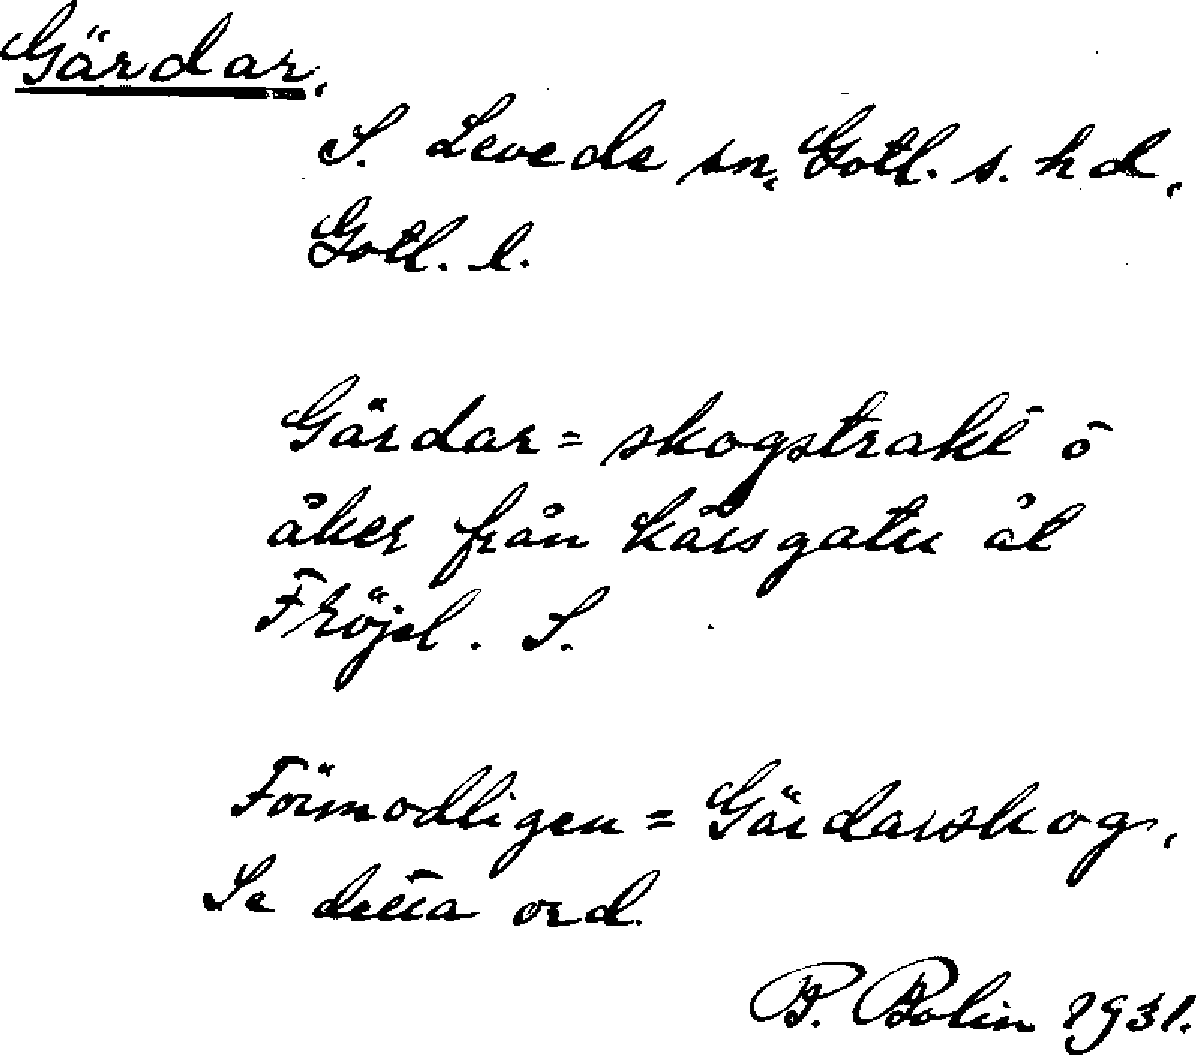 Gärdar,
S. Levede sn, Gotl. s. hd,
Gotl. l.
Gärdar = skogstrakt o
åker från kärsgatu åt
Fröjel. S.
Förmodligen = Gärdarskog,
Se detta ord.
B. Bolin 1931.